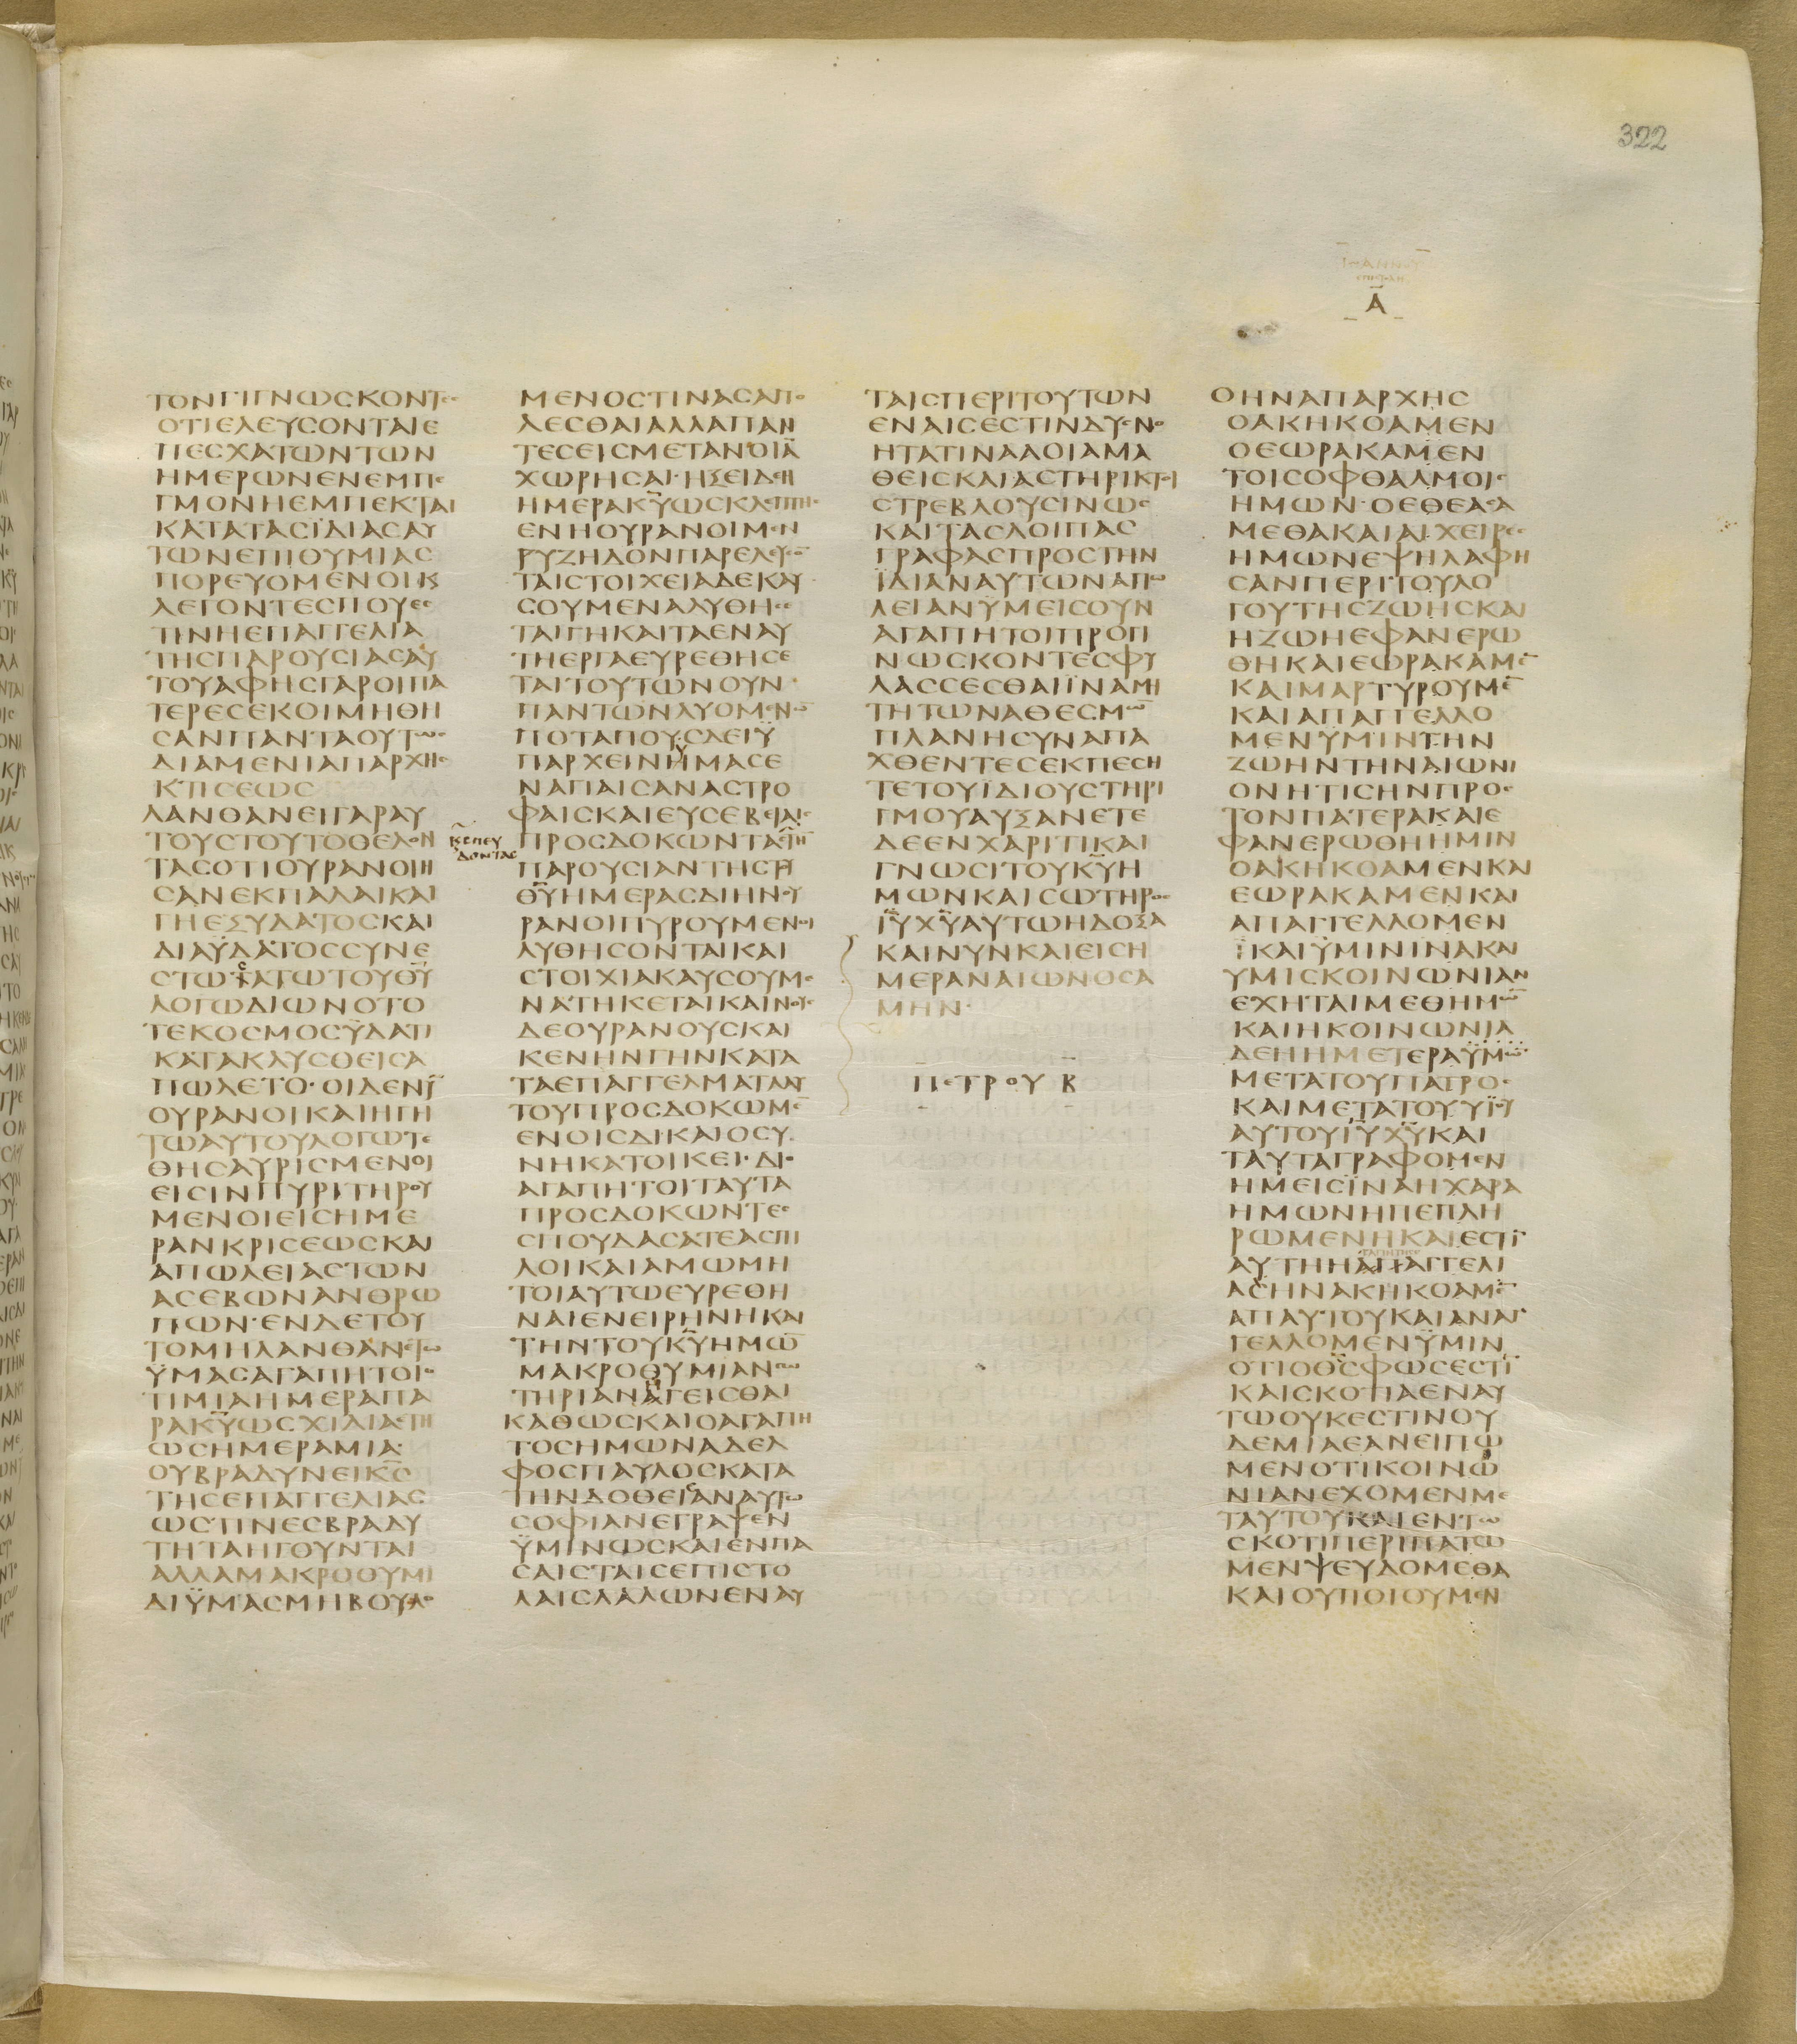 322
Α
ΤΟΝΓΙΓΝΩϹΚΟΝΤΕϹ
ΟΤΙΕΛΕΥϹΟΝΤΑΙΕ
ΠΕϹΧΑΤΩΝΤΩΝ
ΗΜΕΡΩΝΕΝΕΜΠΕ
ΓΜΟΝΗΕΜΠΕΚΤΑΙ
ΚΑΤΑΤΑϹΪΔΙΑϹΑΥ
ΤΩΝΕΠΙΘΥΜΙΑϹ
ΠΟΡΕΥΟΜΕΝΟΙΚ
ΛΕΓΟΝΤΕϹΠΟΥΕϹ
ΤΙΝΗΕΠΑΓΓΕΛΙΑ
ΤΗϹΠΑΡΟΥϹΙΑϹΑΥ
ΤΟΥΑΦΗϹΓΑΡΟΙΠΑ
ΤΕΡΕϹΕΚΟΙΜΗΘΗ
ϹΑΝΠΑΝΤΑΟΥΤΩϹ
ΔΙΑΜΕΝΙΑΠΑΡΧΗϹ
ΚΤΙϹΕΩϹ
ΛΑΝΘΑΝΕΙΓΑΡΑΥ
ΤΟΥϹΤΟΥΤΟΘΕΛΟΝ
ΤΑϹΟΤΙΟΥΡΑΝΟΙΗ
ϹΑΝΕΚΠΑΛΑΙΚΑΙ
ΓΗΕΞΥΔΑΤΟϹΚΑΙ
ΔΙΑΫΔΑΤΟϹϹΥΝΕ
ϹΤΩΤΑΤΩΤΟΥΘΥ
ΛΟΓΩΔΙΩΝΟΤΟ
ΤΕΚΟϹΜΟϹΫΔΑΤΙ
ΚΑΤΑΚΛΥϹΘΕΙϹΑ
ΠΩΛΕΤΟ·ΟΙΔΕΝΥ̅
ΟΥΡΑΝΟΙΚΑΙΗΓΗ
ΤΩΑΥΤΟΥΛΟΓΩΤΕ
ΘΗϹΑΥΡΙϹΜΕΝΟΙ
ΕΙϹΙΝΠΥΡΙΤΗΡΟΥ
ΜΕΝΟΙΕΙϹΗΜΕ
ΡΑΝΚΡΙϹΕΩϹΚΑΙ
ΑΠΩΛΕΙΑϹΤΩΝ
ΑϹΕΒΩΝΑΝΘΡΩ
ΠΩΝ·ΕΝΔΕΤΟΥ
ΤΟΜΗΛΑΝΘΑΝΕΤΩ
ΫΜΑϹΑΓΑΠΗΤΟΙΟ
ΤΙΜΙΑΗΜΕΡΑΠΑ
ΡΑΚΥ̅ΩϹΧΙΛΙΑΕΤΗ
ΩϹΗΜΕΡΑΜΙΑ·
ΟΥΒΡΑΔΥΝΕΙΚϹ̅
ΤΗϹΕΠΑΓΓΕΛΙΑϹ
ΩϹΤΙΝΕϹΒΡΑΔΥ
ΤΗΤΑΗΓΟΥΝΤΑΙ
ΑΛΛΑΜΑΚΡΟΘΥΜΙ
ΔΙΫΜΑϹΜΗΒΟΥΛΟ
ΚΕΠΕΥ
ΔΟΝΤΑϹ
ΜΕΝΟϹΤΙΝΑϹΑΠΟ
ΛΕϹΘΑΙΑΛΛΑΠΑΝ
ΤΕϹΕΙϹΜΕΤΑΝΟΙΑ̅
ΧΩΡΗϹΑΙ·ΗΞΕΙΔΕΗ
ΗΜΕΡΑΚΥ̅ΩϹΚΛΕΠΤΗϹ
ΕΝΗΟΥΡΑΝΟΙΜΕΝ
ΡΥΖΗΔΟΝΠΑΡΕΛΕΥϹΟ̅
ΤΑΙϹΤΟΙΧΕΙΑΔΕΚΑΥ
ϹΟΥΜΕΝΑΛΥΘΗϹΕ
ΤΑΙΓΗΚΑΙΤΑΕΝΑΥ
ΤΗΕΡΓΑΕΥΡΕΘΗϹΕ
ΤΑΙΤΟΥΤΩΝΟΥΝ
ΠΑΝΤΩΝΛΥΟΜΕΝΩ̅
ΠΟΤΑΠΟΥϹΔΕΙΫ
ΠΑΡΧΕΙΝΗΜΑϹΕ
ΝΑΓΙΑΙϹΑΝΑϹΤΡΟ
ΦΑΙϹΚΑΙΕΥϹΕΒΕΙΑΙϹ
ΠΡΟϹΔΟΚΩΝΤΑϹΤΗ̅
ΠΑΡΟΥϹΙΑΝΤΗϹΤΟΥ
ΘΥ̅ΗΜΕΡΑϹΔΙΗΝΟΥ
ΡΑΝΟΙΠΥΡΟΥΜΕΝΟΙ
ΛΥΘΗϹΟΝΤΑΙΚΑΙ
ϹΤΟΙΧΙΑΚΑΥϹΟΥΜΕ
ΝΑΤΗΚΕΤΑΙΚΑΙΝΟΥϹ
ΔΕΟΥΡΑΝΟΥϹΚΑΙ
ΚΕΝΗΝΓΗΝΚΑΤΑ
ΤΑΕΠΑΓΓΕΛΜΑΤΑΑΥ
ΤΟΥΠΡΟϹΔΟΚΩΜΕ̅
ΕΝΟΙϹΔΙΚΑΙΟϹΥ
ΝΗΚΑΤΟΙΚΕΙ·ΔΙΟ
ΑΓΑΠΗΤΟΙΤΑΥΤΑ
ΠΡΟϹΔΟΚΩΝΤΕϹ
ϹΠΟΥΔΑϹΑΤΕΑϹΠΙ
ΛΟΙΚΑΙΑΜΩΜΗ
ΤΟΙΑΥΤΩΕΥΡΕΘΗ
ΝΑΙΕΝΕΙΡΗΝΗΚΑΙ
ΤΗΝΤΟΥΚΥ̅ΗΜΩ̅
ΜΑΚΡΟΘΥΜΙΑΝϹΩ
ΤΗΡΙΑΝΑΓΕΙϹΘΑΙ
ΚΑΘΩϹΚΑΙΟΑΓΑΠΗ
ΤΟϹΗΜΩΝΑΔΕΛ
ΦΟϹΠΑΥΛΟϹΚΑΤΑ
ΤΗΝΔΟΘΕΙϹΑΝΑΥΤΩ
ϹΟΦΙΑΝΕΓΡΑΨΕΝ
ΫΜΙΝΩϹΚΑΙΕΝΠΑ
ϹΑΙϹΤΑΙϹΕΠΙϹΤΟ
ΛΑΙϹΛΑΛΩΝΕΝΑΥ
ΤΑΙϹΠΕΡΙΤΟΥΤΩΝ
ΕΝΑΙϹΕϹΤΙΝΔΥϹΝΟ
ΗΤΑΤΙΝΑΑΟΙΑΜΑ
ΘΕΙϹΚΑΙΑϹΤΗΡΙΚΤΟΙ
ϹΤΡΕΒΛΟΥϹΙΝΩϹ
ΚΑΙΤΑϹΛΟΙΠΑϹ
ΓΡΑΦΑϹΠΡΟϹΤΗΝ
ΪΔΙΑΝΑΥΤΩΝΑΠΩ
ΛΕΙΑΝΫΜΕΙϹΟΥΝ
ΑΓΑΠΗΤΟΙΠΡΟΓΙ
ΝΩϹΚΟΝΤΕϹΦΥ
ΛΑϹϹΕϹΘΑΙΪΝΑΜΗ
ΤΗΤΩΝΑΘΕϹΜΩ̅
ΠΛΑΝΗϹΥΝΑΠΑ
ΧΘΕΝΤΕϹΕΚΠΕϹΗ
ΤΕΤΟΥΪΔΙΟΥϹΤΗΡΙ
ΓΜΟΥΑΥΞΑΝΕΤΕ
ΔΕΕΝΧΑΡΙΤΙΚΑΙ
ΓΝΩϹΙΤΟΥΚΥ̅Η
ΜΩΝΚΑΙϹΩΤΗΡΟϹ
ΙΥ̅ΧΥ̅ΑΥΤΩΗΔΟΞΑ
ΚΑΙΝΥΝΚΑΙΕΙϹΗ
ΜΕΡΑΝΑΙΩΝΟϹΑ
ΜΗΝ·
ΠΕΤΡΟΥ Β
ΟΗΝΑΠΑΡΧΗϹ
ΟΑΚΗΚΟΑΜΕΝ
ΟΕΩΡΑΚΑΜΕΝ
ΤΟΙϹΟΦΘΑΛΜΟΙϹ
ΗΜΩΝ·ΟΕΘΕΑϹΑ
ΜΕΘΑΚΑΙΑΙΧΕΙΡΕϹ
ΗΜΩΝΕΨΗΛΑΦΗ
ϹΑΝΠΕΡΙΤΟΥΛΟ
ΓΟΥΤΗϹΖΩΗϹΚΑΙ
ΗΖΩΗΕΦΑΝΕΡΩ
ΘΗΚΑΙΕΩΡΑΚΑΜΕ̅
ΚΑΙΜΑΡΤΥΡΟΥΜΕ̅
ΚΑΙΑΠΑΓΓΕΛΛΟ
ΜΕΝΥΜΙΝΤΗΝ
ΖΩΗΝΤΗΝΑΙΩΝΙ
ΟΝΗΤΙϹΗΝΠΡΟϹ
ΤΟΝΠΑΤΕΡΑΚΑΙΕ
ΦΑΝΕΡΩΘΗΗΜΙΝ
ΟΑΚΗΚΟΑΜΕΝΚΑΙ
ΕΩΡΑΚΑΜΕΝΚΑΙ
ΑΠΑΓΓΕΛΛΟΜΕΝ
ΚΑΙΫΜΙΝΙΝΑΚΑΙ
ΥΜΙϹΚΟΙΝΩΝΙΑΝ
ΕΧΗΤΑΙΜΕΘΗΜΩ̅
ΚΑΙΗΚΟΙΝΩΝΙΑ
ΔΕΗΗΜΕΤΕΡΑΫΜΩ̅
ΜΕΤΑΤΟΥΠΑΤΡΟϹ
ΚΑΙΜΕΤΑΤΟΥΥΪΟΥ
ΑΥΤΟΥΙΥ̅ΧΥ̅ΚΑΙ
ΤΑΥΤΑΓΡΑΦΟΜΕΝ
ΗΜΕΙϹΪΝΑΗΧΑΡΑ
ΗΜΩΝΗΠΕΠΛΗ
ΡΩΜΕΝΗΚΑΙΕϹΤΙ̅
ΑΥΤΗΗΑΠΑΓΓΕΛΙ
ΑϹΗΝΑΚΗΚΟΑΜΕ̅
ΑΠΑΥΤΟΥΚΑΙΑΝΑΓ
ΓΕΛΛΟΜΕΝΫΜΙΝ
ΟΤΙΟΘϹ̅ΦΩϹΕϹΤΙ̅
ΚΑΙϹΚΟΤΙΑΕΝΑΥ
ΤΩΟΥΚΕϹΤΙΝΟΥ
ΔΕΜΙΑΕΑΝΕΙΠΩ
ΜΕΝΟΤΙΚΟΙΝΩ
ΝΙΑΝΕΧΟΜΕΝΜΕ
ΤΑΥΤΟΥΚΑΙΕΝΤΩ
ϹΚΟΤΙΠΕΡΙΠΑΤΩ
ΜΕΝΨΕΥΔΟΜΕΘΑ
ΚΑΙΟΥΠΟΙΟΥΜΕΝ